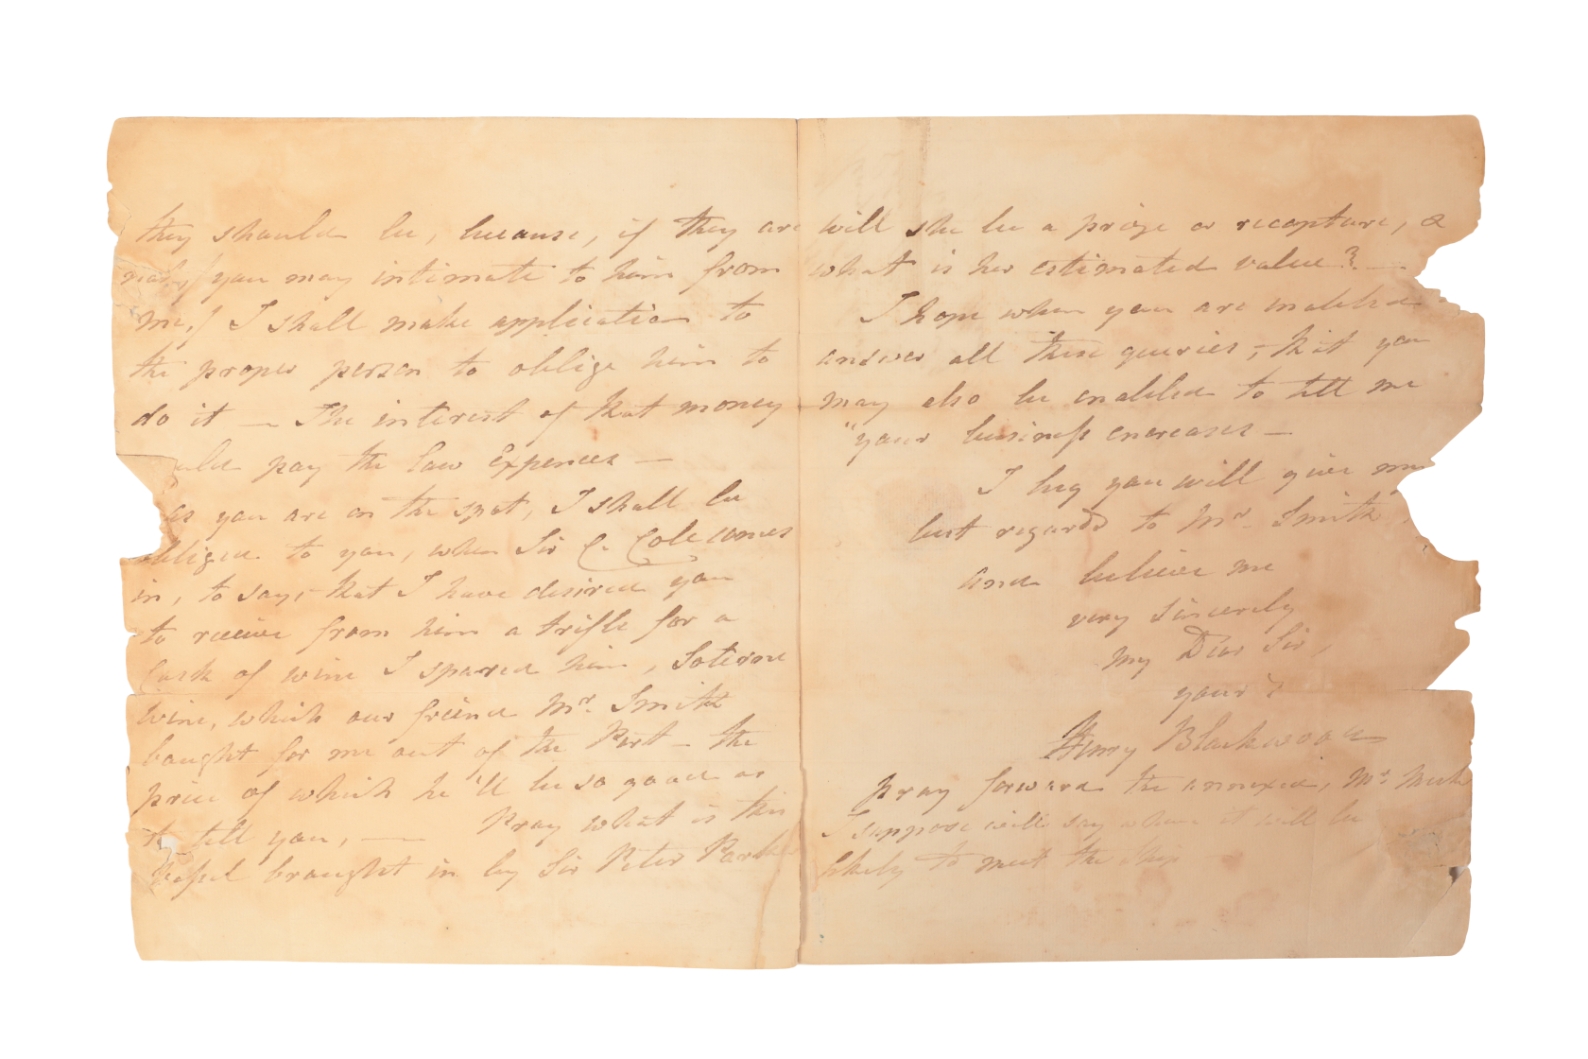 they should be, because, if they are
you may intimate to him from
me,/ I shall make application to
the proper person to oblige him to
do it — The interest of that money
pay the Law Expences —
As you are on the spot, I shall be
obliged to you, when Sir C. Cole comes
in, to say, that I have desired you
to receive from him a trifle for a
Cask of wine I spared him, Soterne
Wine, which our friend Mr. Smith
bought for me out of the Port — the
price of which he'll be so good as
to tell you, — Pray what is this
Vessel brought in by Sir Peter Parker
will she be a prize or recapture, &
what is her estimated value? —
I hope when you are enabled
answer all these queries, that you
may also be enabled to tell me
"your business encreases —
I beg you will give my
best regards to Mr. Smith,
and believe me
very sincerely
My Dear Sir,
yours
Henry Blackwood
Pray forward the annexed, Mr.
I suppose will say where it will be
likely to meet the Ship